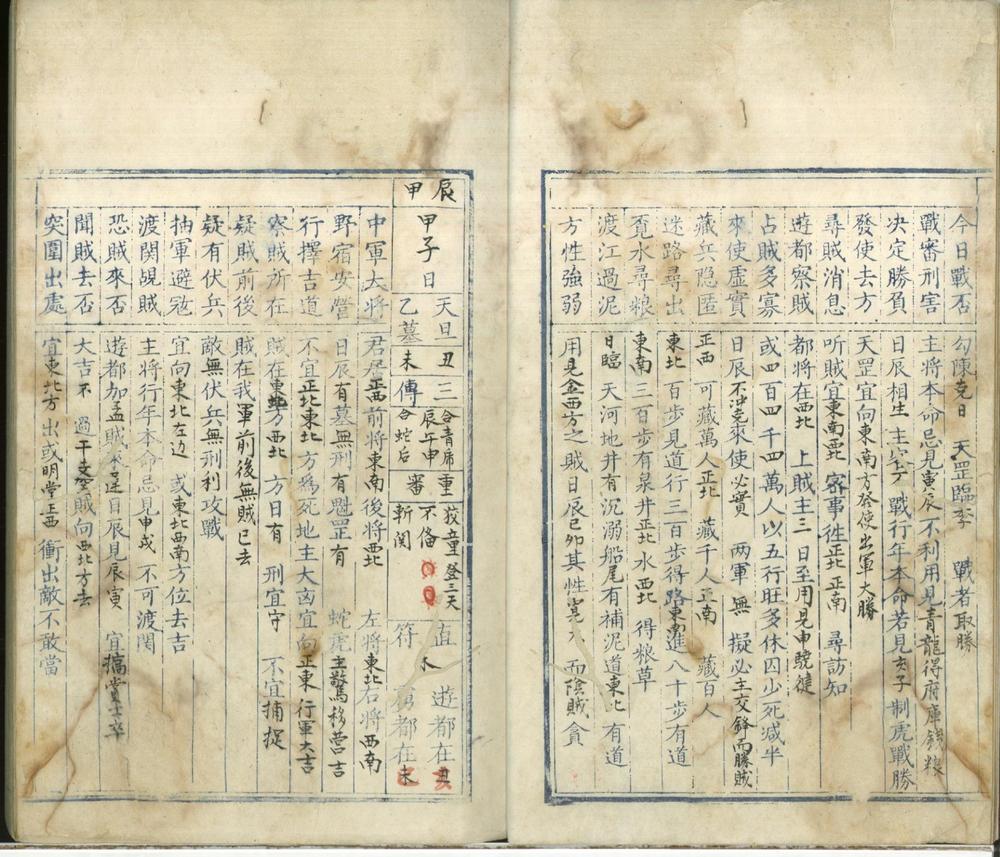 今日戰否 勾陳克日 天罡臨季 戰者取勝
戰審刑害 主將本命忌見寅辰不利用見青龍得府庫錢粮
决定勝負 日辰相生主 戰行年本命若見亥子制虎戰勝
發使去方 天罡宜向東南方發使出軍大勝
尋賊消息 听賊宜東南西北 事徃正北正南 尋訪知
遊都察賊 都將在西北 上賊主三日至用見申驍健
占賊多寡 或四百四千四萬人以五行旺多休囚少死減半
來使虛實 日辰不冲克來使必實 两軍無 擬必主交鋒而勝賊
藏兵隐匿 正西 可藏萬人正北 藏千人正南 藏百人
迷路尋出 東北 百步見道行三百步得路東南進八十步有道
覔水尋粮 東南三百步有泉井正北水西北 得粮草
渡江過泥 日臨 天河地井有沉溺船尾有補泥道東北有道
方性強弱 用見金西方之賊日辰巳卯其性寬大 而陰賊貪
辰甲
甲子日 天旦 丑 三 合青蛇 辰午申 重 登三天
乙墓 未 傳 合蛇后 審 不俻 斬関
直 水 符
遊都在丑
都在未
中軍大將 君居正西前將東南後將西北 左將東北右將西南
野宿安營 日辰有墓無刑有魁罡有 蛇虎主驚移营吉
行擇吉道 不宜正北東北方為死地主大凶宜向正東行軍大吉
察賊所在 賊在 方西北 方日有 刑宜守 不宜捕捉
疑賊前後 賊在我軍前後無賊已去
疑有伏兵 敵無伏兵無刑利攻戰
抽軍避宼 宜向東北左边 或東北西南方位去吉
渡関覘賊 主將行年本命忌見申戍 不可渡関
恐賊來否 遊都加孟賊 日辰見辰寅 宜犒賞士卒
聞賊去否 大吉不 過干支 賊向西北方去
突圍出處 宜東北方 出或明堂正西 衝出敵不敢當